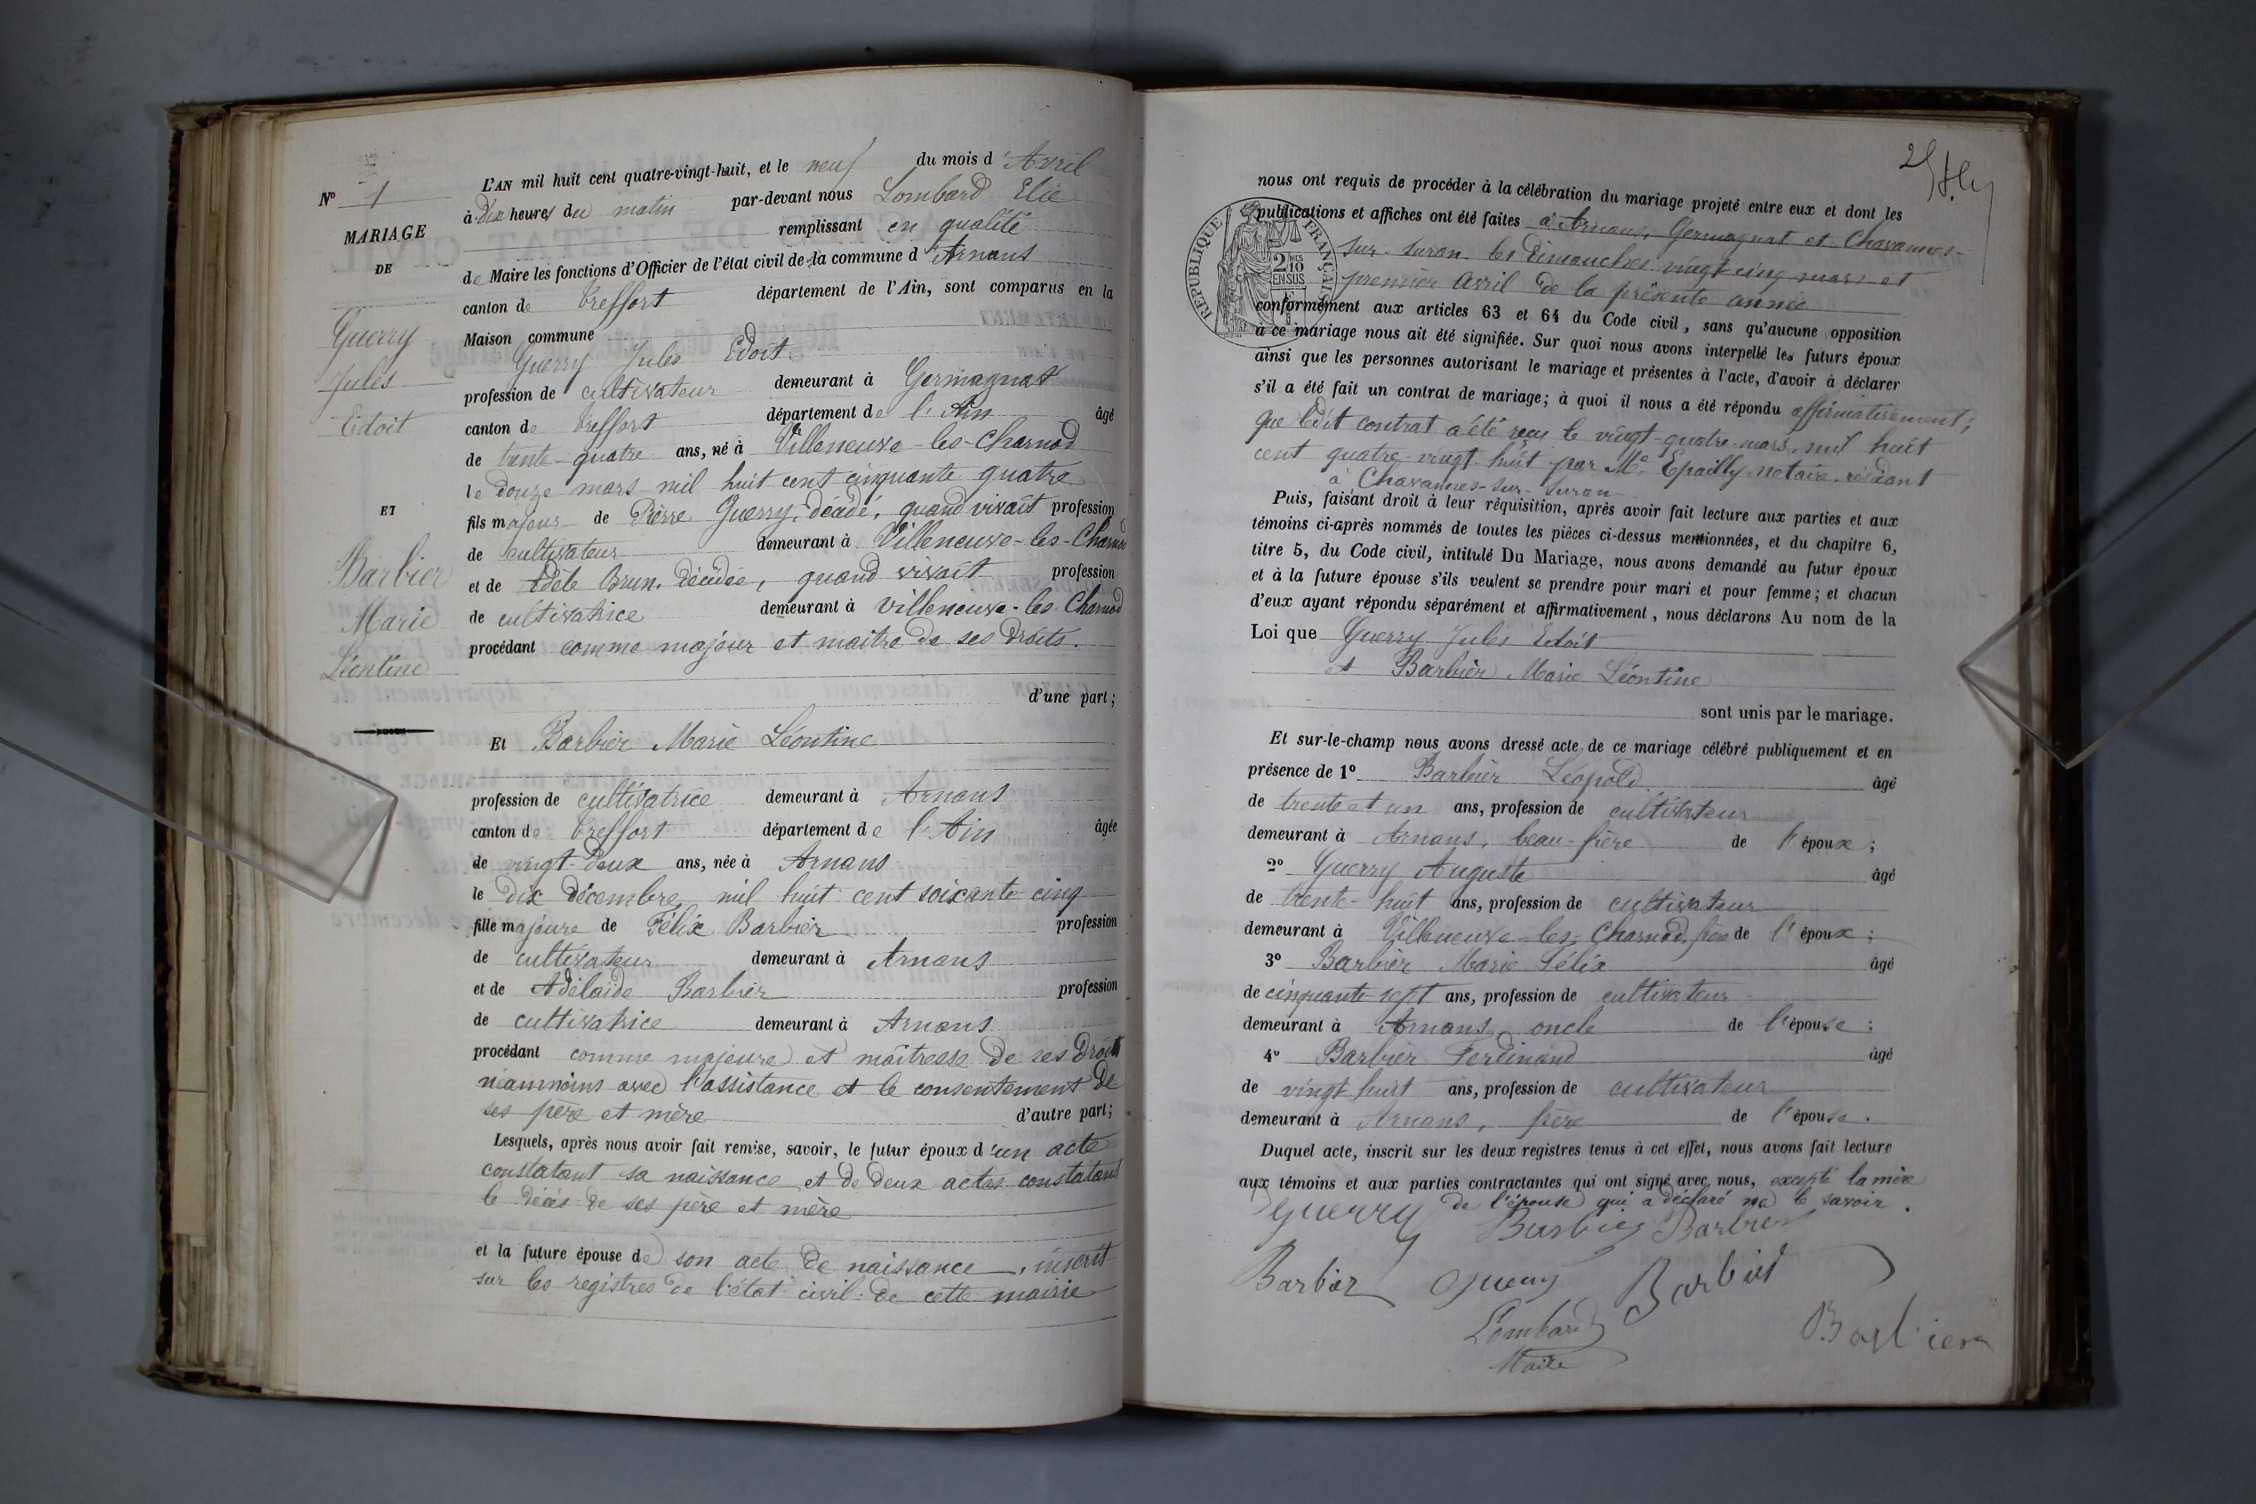 N° 1
MARIAGE
DE
Guerry
Jules
Edoit
ET
Barbier
Marie
Léontine
L'AN mil huit cent quatre-vingt-huit, et le neuf du mois d'Avril
à Dix heures du matin par-devant nous Lombard Elie
remplissant en qualité
de Maire les fonctions d'Officier de l'état civil de la commune d'Arnans
canton de Treffort département de l'Ain, sont comparus en la
Maison commune
Guerry Jules Edoit
profession de cultivateur demeurant à Germagnat
canton de Treffort département de l'Ain âgé
de trente-quatre ans, né à Villeneuve-les-Charnod
le douze mars mil huit cent cinquante quatre
fils majeur de Pierre Guerry, décédé, quand vivait profession
de cultivateur demeurant à Villeneuve-les-Charnod
et de Adèle Brun, décédée, quand vivait profession
de cultivatrice demeurant à Villeneuve-les-Charnod
procédant comme majeur et maitre de ses droits.
d'une part;
Et Barbier Marie Léontine
profession de cultivatrice demeurant à Arnans
canton de Treffort département de l'Ain âgée
de vingt-deux ans, née à Arnans
le dix décembre mil huit cent soixante-cinq
fille majeure de Félix Barbier profession
de cultivateur demeurant à Arnans
et de Adélaïde Barbier profession
de cultivatrice demeurant à Arnans
procédant comme majeure et maîtresse de ses droits
néanmoins avec l'assistance et le consentement de
ses père et mère d'autre part;
Lesquels, après nous avoir fait remise, savoir, le futur époux d'un acte
constatant sa naissance et de deux actes constatant
le décès de ses père et mère
et la future épouse de son acte de naissance, inscrit
sur les registres de l'état civil de cette mairie
nous ont requis de procéder à la célébration du mariage projeté entre eux et dont les
publications et affiches ont été faites à Arnans, Germagnat et Chavannes-
sur-Suran les Dimanches vingt-cinq mars et
premier Avril de la présente année
RÉPUBLIQUE FRANÇAISE
2 10 EN SUS
conformément aux articles 63 et 64 du Code civil, sans qu'aucune opposition
à ce mariage nous ait été signifiée. Sur quoi nous avons interpellé les futurs époux
ainsi que les personnes autorisant le mariage et présentes à l'acte, d'avoir à déclarer
s'il a été fait un contrat de mariage; à quoi il nous a été répondu affirmativement,
que ledit contrat a été reçu le vingt-quatre mars, mil huit
cent quatre-vingt-huit par Me Epailly notaire résidant
à Chavannes-sur-Suran
Puis, faisant droit à leur réquisition, après avoir fait lecture aux parties et aux
témoins ci-après nommés de toutes les pièces ci-dessus mentionnées, et du chapitre 6,
titre 5, du Code civil, intitulé Du Mariage, nous avons demandé au futur époux
et à la future épouse s'ils veulent se prendre pour mari et pour femme; et chacun
d'eux ayant répondu séparément et affirmativement, nous déclarons Au nom de la
Loi que Guerry Jules Edoit
et Barbier Marie Léontine
sont unis par le mariage.
Et sur-le-champ nous avons dressé acte de ce mariage célébré publiquement et en
présence de 1° Barbier Léopold âgé
de trente et un ans, profession de cultivateur
demeurant à Arnans, beau-frère de l'époux;
2° Guerry Auguste âgé
de trente-huit ans, profession de cultivateur
demeurant à Villeneuve-les-Charnod, frère de l'époux;
3° Barbier Marie Félix âgé
de cinquante sept ans, profession de cultivateur
demeurant à Arnans, oncle de l'épouse;
4° Barbier Ferdinand âgé
de vingt huit ans, profession de cultivateur
demeurant à Arnans, frère de l'épouse.
Duquel acte, inscrit sur les deux registres tenus à cet effet, nous avons fait lecture
aux témoins et aux parties contractantes qui ont signé avec nous, excepté la mère
de l'épouse qui a déclaré ne le savoir.
Guerry Barbier Barbier
Barbier Guerry Barbier
Lombard Barbier
Maire